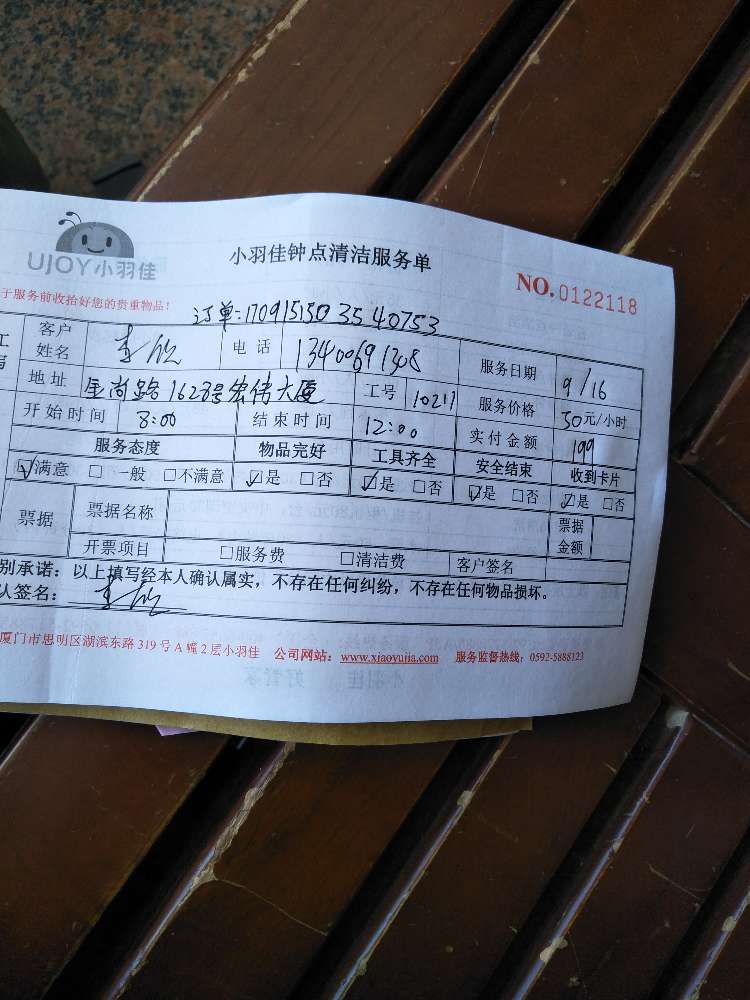 UJOY小羽佳
小羽佳钟点清洁服务单
NO.0122118
于服务前收拾好您的贵重物品!
订单:170915150 3540753
客户姓名 李欣 电话 13400691308 服务日期 9/16
地址 金尚路1628号宏伟大厦 工号 10217 服务价格 50元/小时
开始时间 8:00 结束时间 12:00 实付金额 199
服务态度 物品完好 工具齐全 安全结束 收到卡片
☑满意 □一般 □不满意 ☑是 □否 ☑是 □否 ☑是 □否 ☑是 □否
票据 票据名称 票据金额
开票项目 □服务费 □清洁费 客户签名
别承诺:以上填写经本人确认属实,不存在任何纠纷,不存在任何物品损坏。
认签名: 李欣
厦门市思明区湖滨东路319号A幢2层小羽佳 公司网站:www.xiaoyujia.com 服务监督热线:0592-5888123